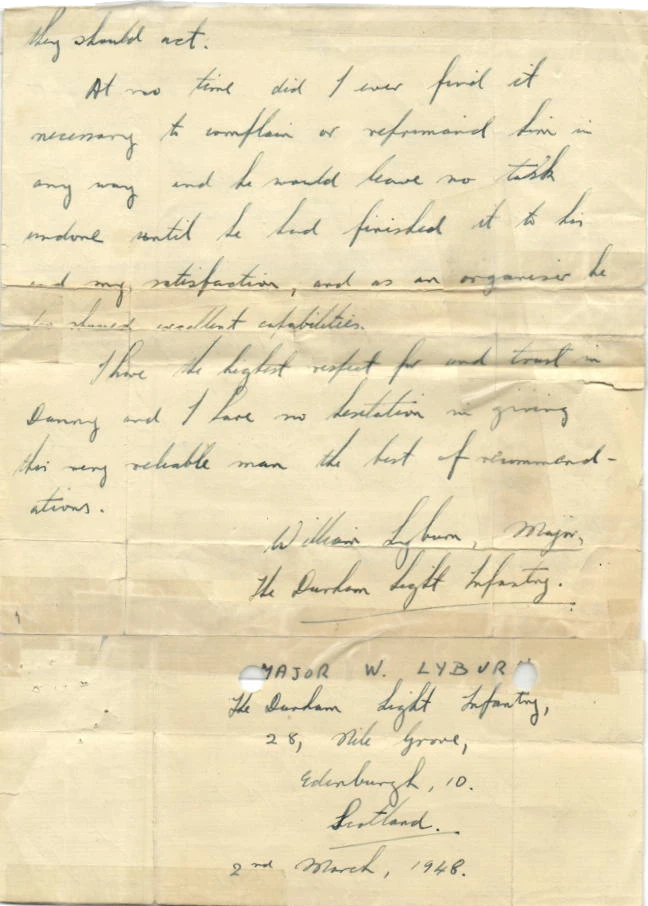 they should act.
At no time did I ever find it
necessary to complain or reprimand him in
any way and he would leave no task
undone until he had finished it to his
and my satisfaction, and as an organiser he
showed excellent capabilities.
I have the highest respect for and trust in
Danny and I have no hesitation in giving
this very reliable man the best of recommend-
ations.
William Lyburn, Major,
The Durham Light Infantry.
MAJOR W. LYBURN
The Durham Light Infantry,
28, Nile Grove,
Edinburgh, 10.
Scotland.
2nd March, 1948.